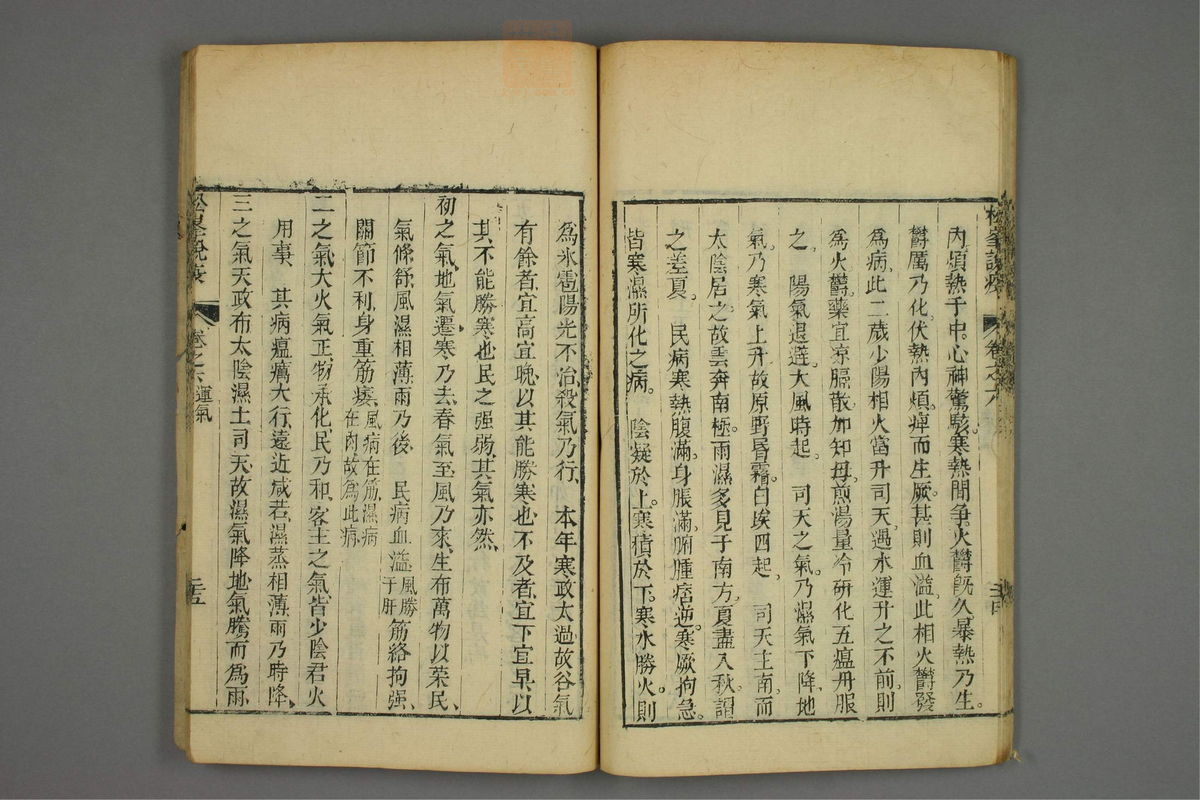 松峯說疫 卷之六 二十四
內煩熱于中。心神驚駭。寒熱間爭。火鬱既久。暴熱乃生。
鬱厲乃化。伏熱內煩。痺而生厥。甚則血溢。此相火鬱發
為病。此二歲少陽相火當升司天。遇水運升之不前。則
為火鬱。藥宜涼膈散加知母。煎湯量冷研化五瘟丹服
之。 陽氣退避。大風時起。 司天之氣。乃濕氣下降。地
氣。乃寒氣上升。故原野昏霜。白埃四起。 司天主南。而
太陰居之。故雲奔南極。雨濕多見于南方。夏盡入秋。謂
之差夏。 民病寒熱腹滿。身脹滿。胕腫痞逆。寒厥拘急。
皆寒濕所化之病。 陰凝於上。寒積於下。寒水勝火。則
為氷雹。陽光不治。殺氣乃行。 本年寒政太過。故谷氣
有餘者。宜高宜晚。以其能勝寒也。不及者。宜下宜早。以
其不能勝寒也。民之强弱。其氣亦然。
初之氣。地氣遷。寒乃去。春氣至。風乃來。生布萬物以榮。民
氣條舒。風濕相薄。雨乃後。 民病血溢。風勝于肝筋絡拘强。
關節不利。身重筋痿。風病在筋。濕病在肉。故為此病
二之氣。大火氣正。物承化。民乃和。客主之氣。皆少陰君火
用事。 其病瘟癘大行。遠近咸若。濕蒸相薄。雨乃時降。
三之氣。天政布。太陰濕土司天。故濕氣降。地氣騰而為雨。
松峯說疫 卷之六 運氣 二十五